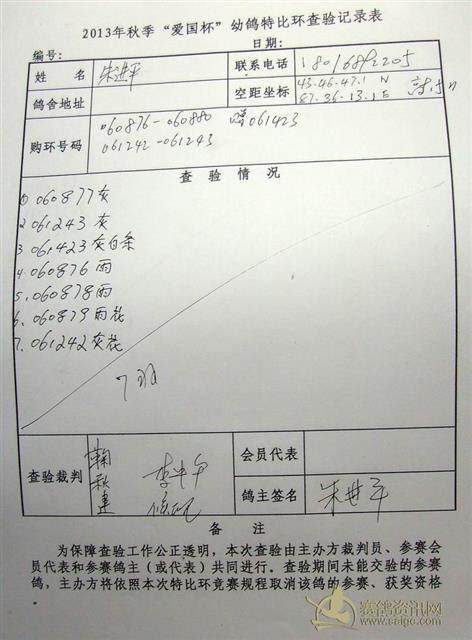 2013年秋季“爱国杯”幼鸽特比环查验记录表
编号： 日期：
姓名 朱进平 联系电话 18016892205
鸽舍地址 空距坐标 43-46-47.1 N
87-36-13.1 E
购环号码 060876-060880 赠061423
061242-061243
查验情况
①060877灰
2.061243灰
3.061423灰白条
4.060876雨
5.060878雨
6.060879雨花
7.061242灰花
7羽
查验裁判 鞠秋建 会员代表
鸽主签名 朱进平
备注
为保障查验工作公正透明，本次查验由主办方裁判员、参赛会
员代表和参赛鸽主（或代表）共同进行。查验期间未能交验的参赛
鸽，主办方将依照本次特比环竞赛规程取消该鸽的参赛、获奖资格
赛鸽资讯网
www.saige.com